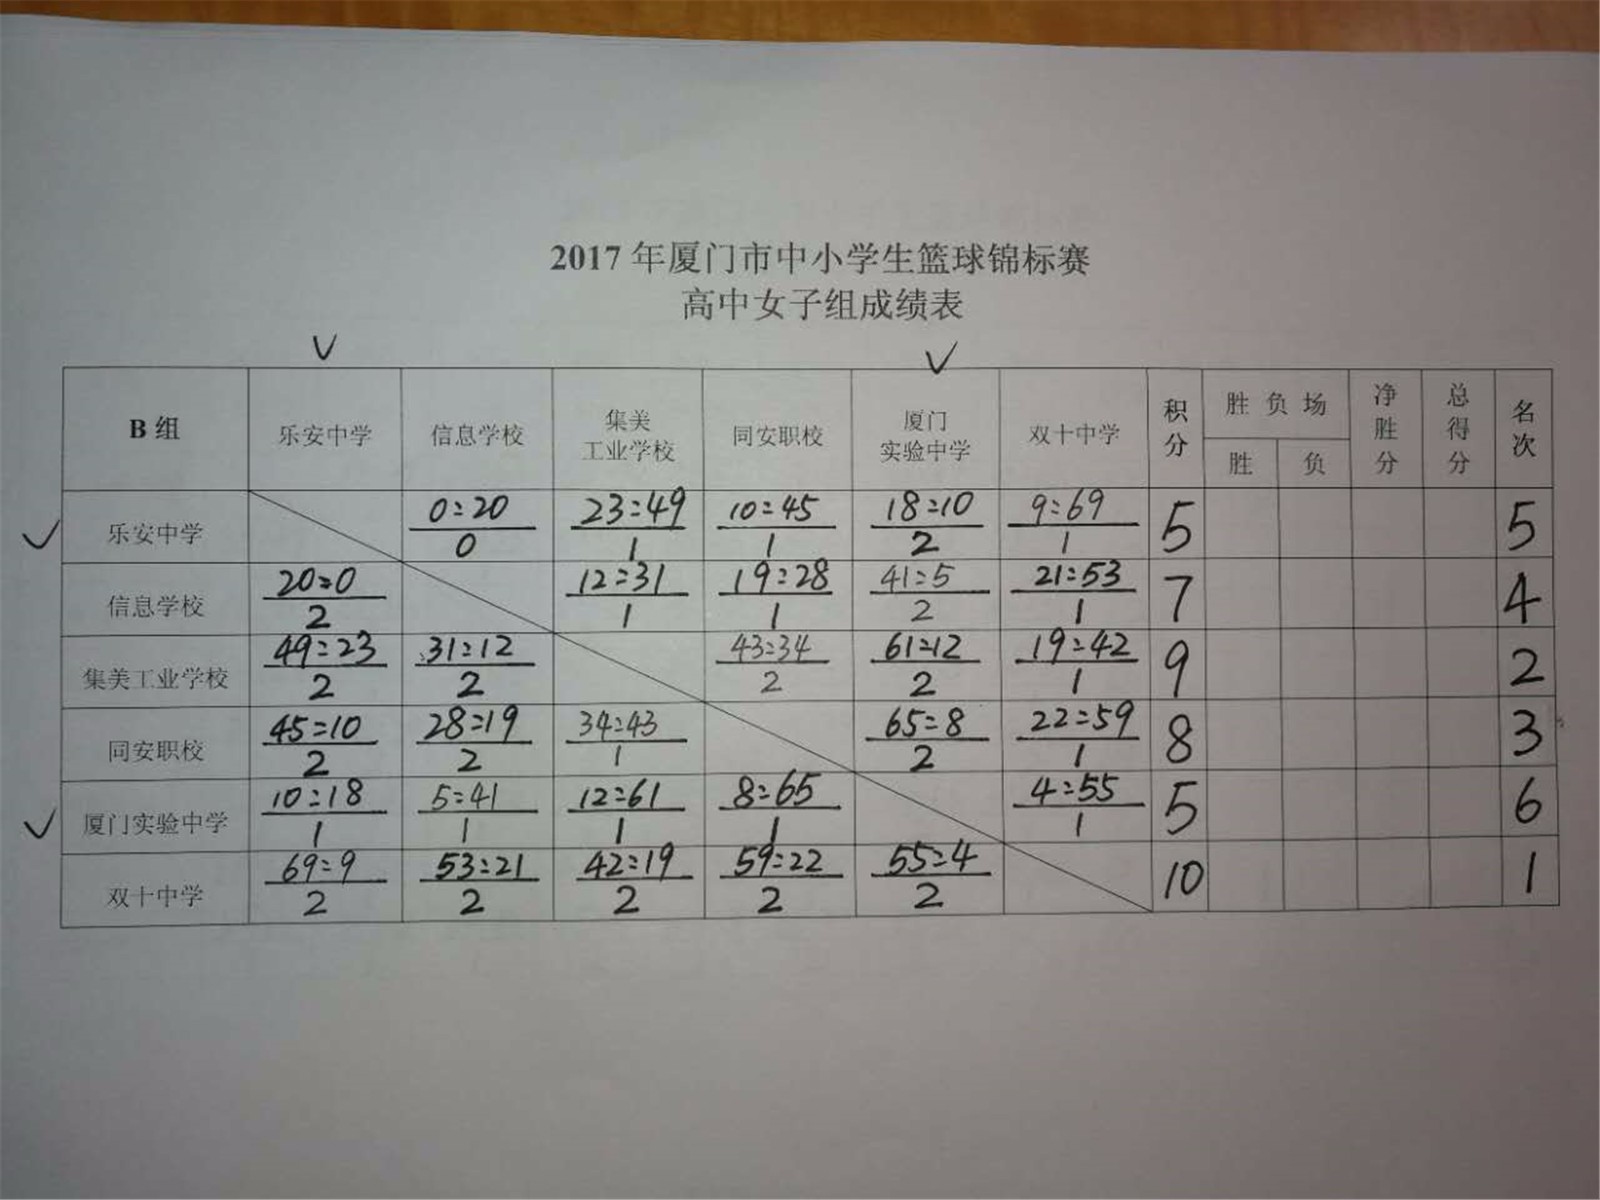 2017年厦门市中小学生篮球锦标赛
高中女子组成绩表
B组 乐安中学 信息学校 集美工业学校 同安职校 厦门实验中学 双十中学 积分 胜负场 胜 负 净胜分 总得分 名次
乐安中学 0:20 0 23:49 1 10:45 1 18:10 2 9:69 1 5 5
信息学校 20:0 2 12:31 1 19:28 1 41:5 2 21:53 1 7 4
集美工业学校 49:23 2 31:12 2 43:34 2 61:12 2 19:42 1 9 2
同安职校 45:10 2 28:19 2 34:43 1 65:8 2 22:59 1 8 3
厦门实验中学 10:18 1 5:41 1 12:61 1 8:65 1 4:55 1 5 6
双十中学 69:9 2 53:21 2 42:19 2 59:22 2 55:4 2 10 1